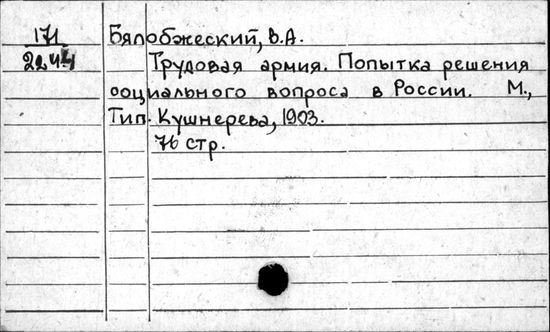 171 Бялобжеский, В.А.
2244 Трудовая армия. Попытка решения
социального вопроса в России. М.,
Тип. Кушнерева, 1903.
76 стр.